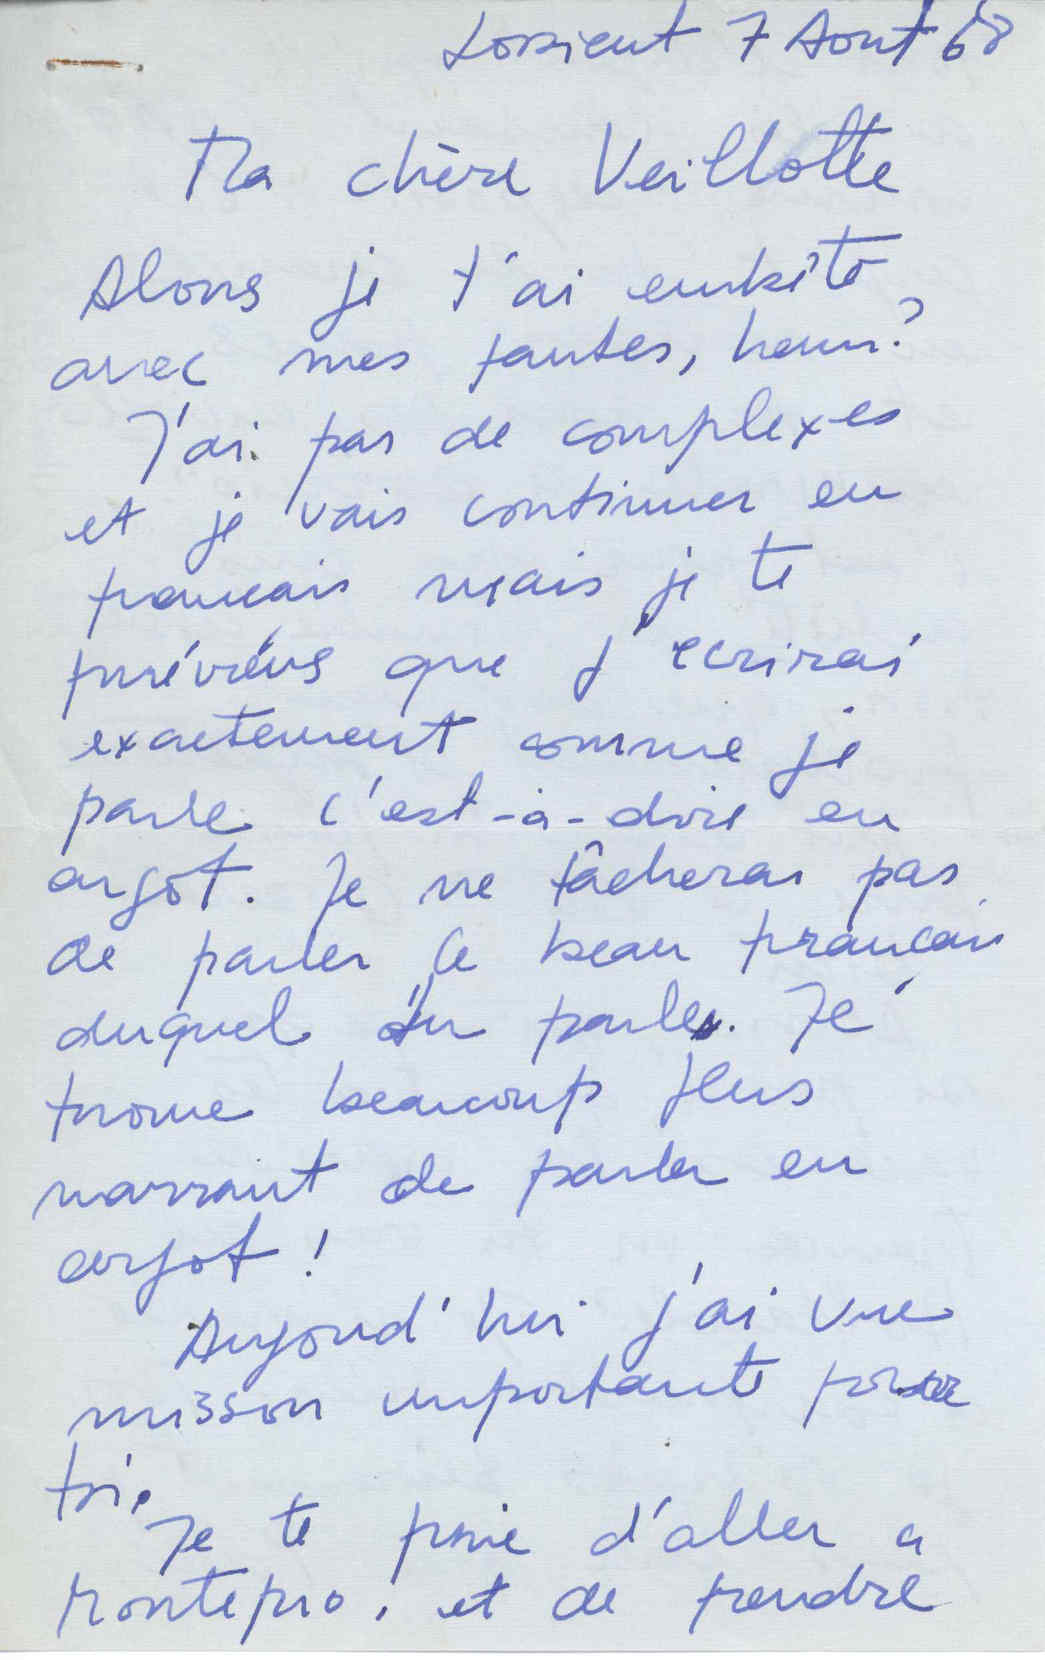 Lorient 7 Aout 68
Ma chère Veillotte
Alors je t'ai embêté
avec mes fautes, hein?
J'ai pas de complexes
et je vais continuer en
francais mais je te
préviéns que j'ecrirai
exactement comme je
parle c'est-à-dire en
argot. Je ne tâcherai pas
de parler le beau francais
duquel tu parles. Je
trouve beaucoup plus
marrant de parler en
argot!
Aujourd'hui j'ai une
misson importante pour
toi.
Je te prie d'aller a
Montepro. et de prendre